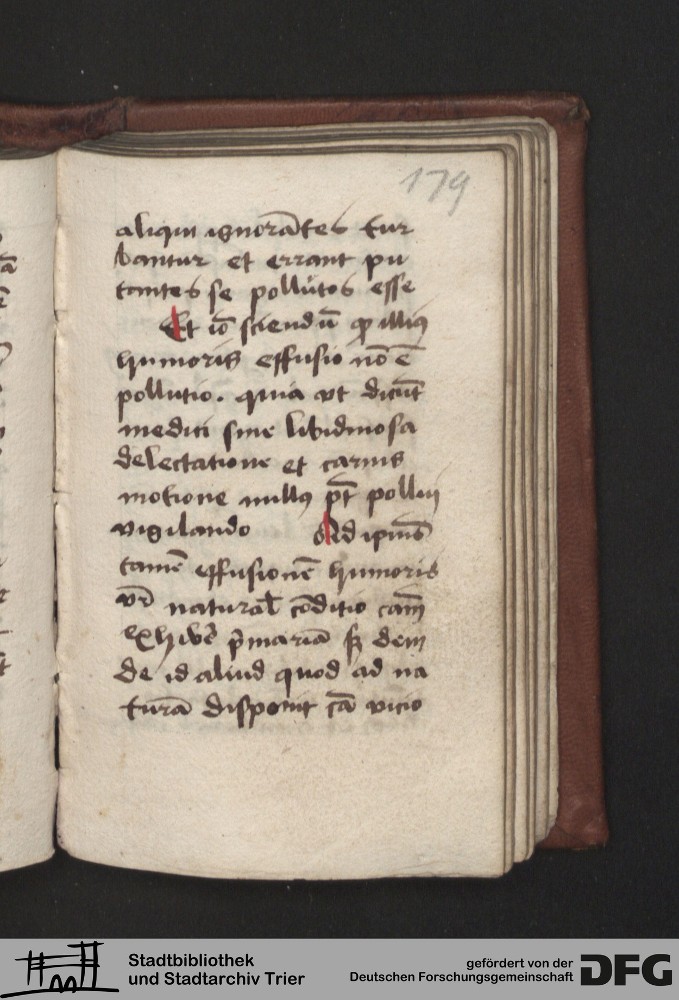 179
aliqui ignorātes tur
bantur et errant pu
tantes se pollutos esse
Et iō sciendū ꝙ illiꝰ
humoris effusio nō ē
pollutio. quia vt dicūt
medici sine libidinosa
delectatione et carnis
motione nullꝰ pt̄ pollui
vigilando Ad ipius̄
tamē effusionē humoris
vr̄ natural̄ cōditio cām
exhibe͛ p͛mariā sꝫ dein
de id aliud quod ad na
turā disponit cā vicio
Stadtbibliothek
und Stadtarchiv Trier
gefördert von der
Deutschen Forschungsgemeinschaft
DFG